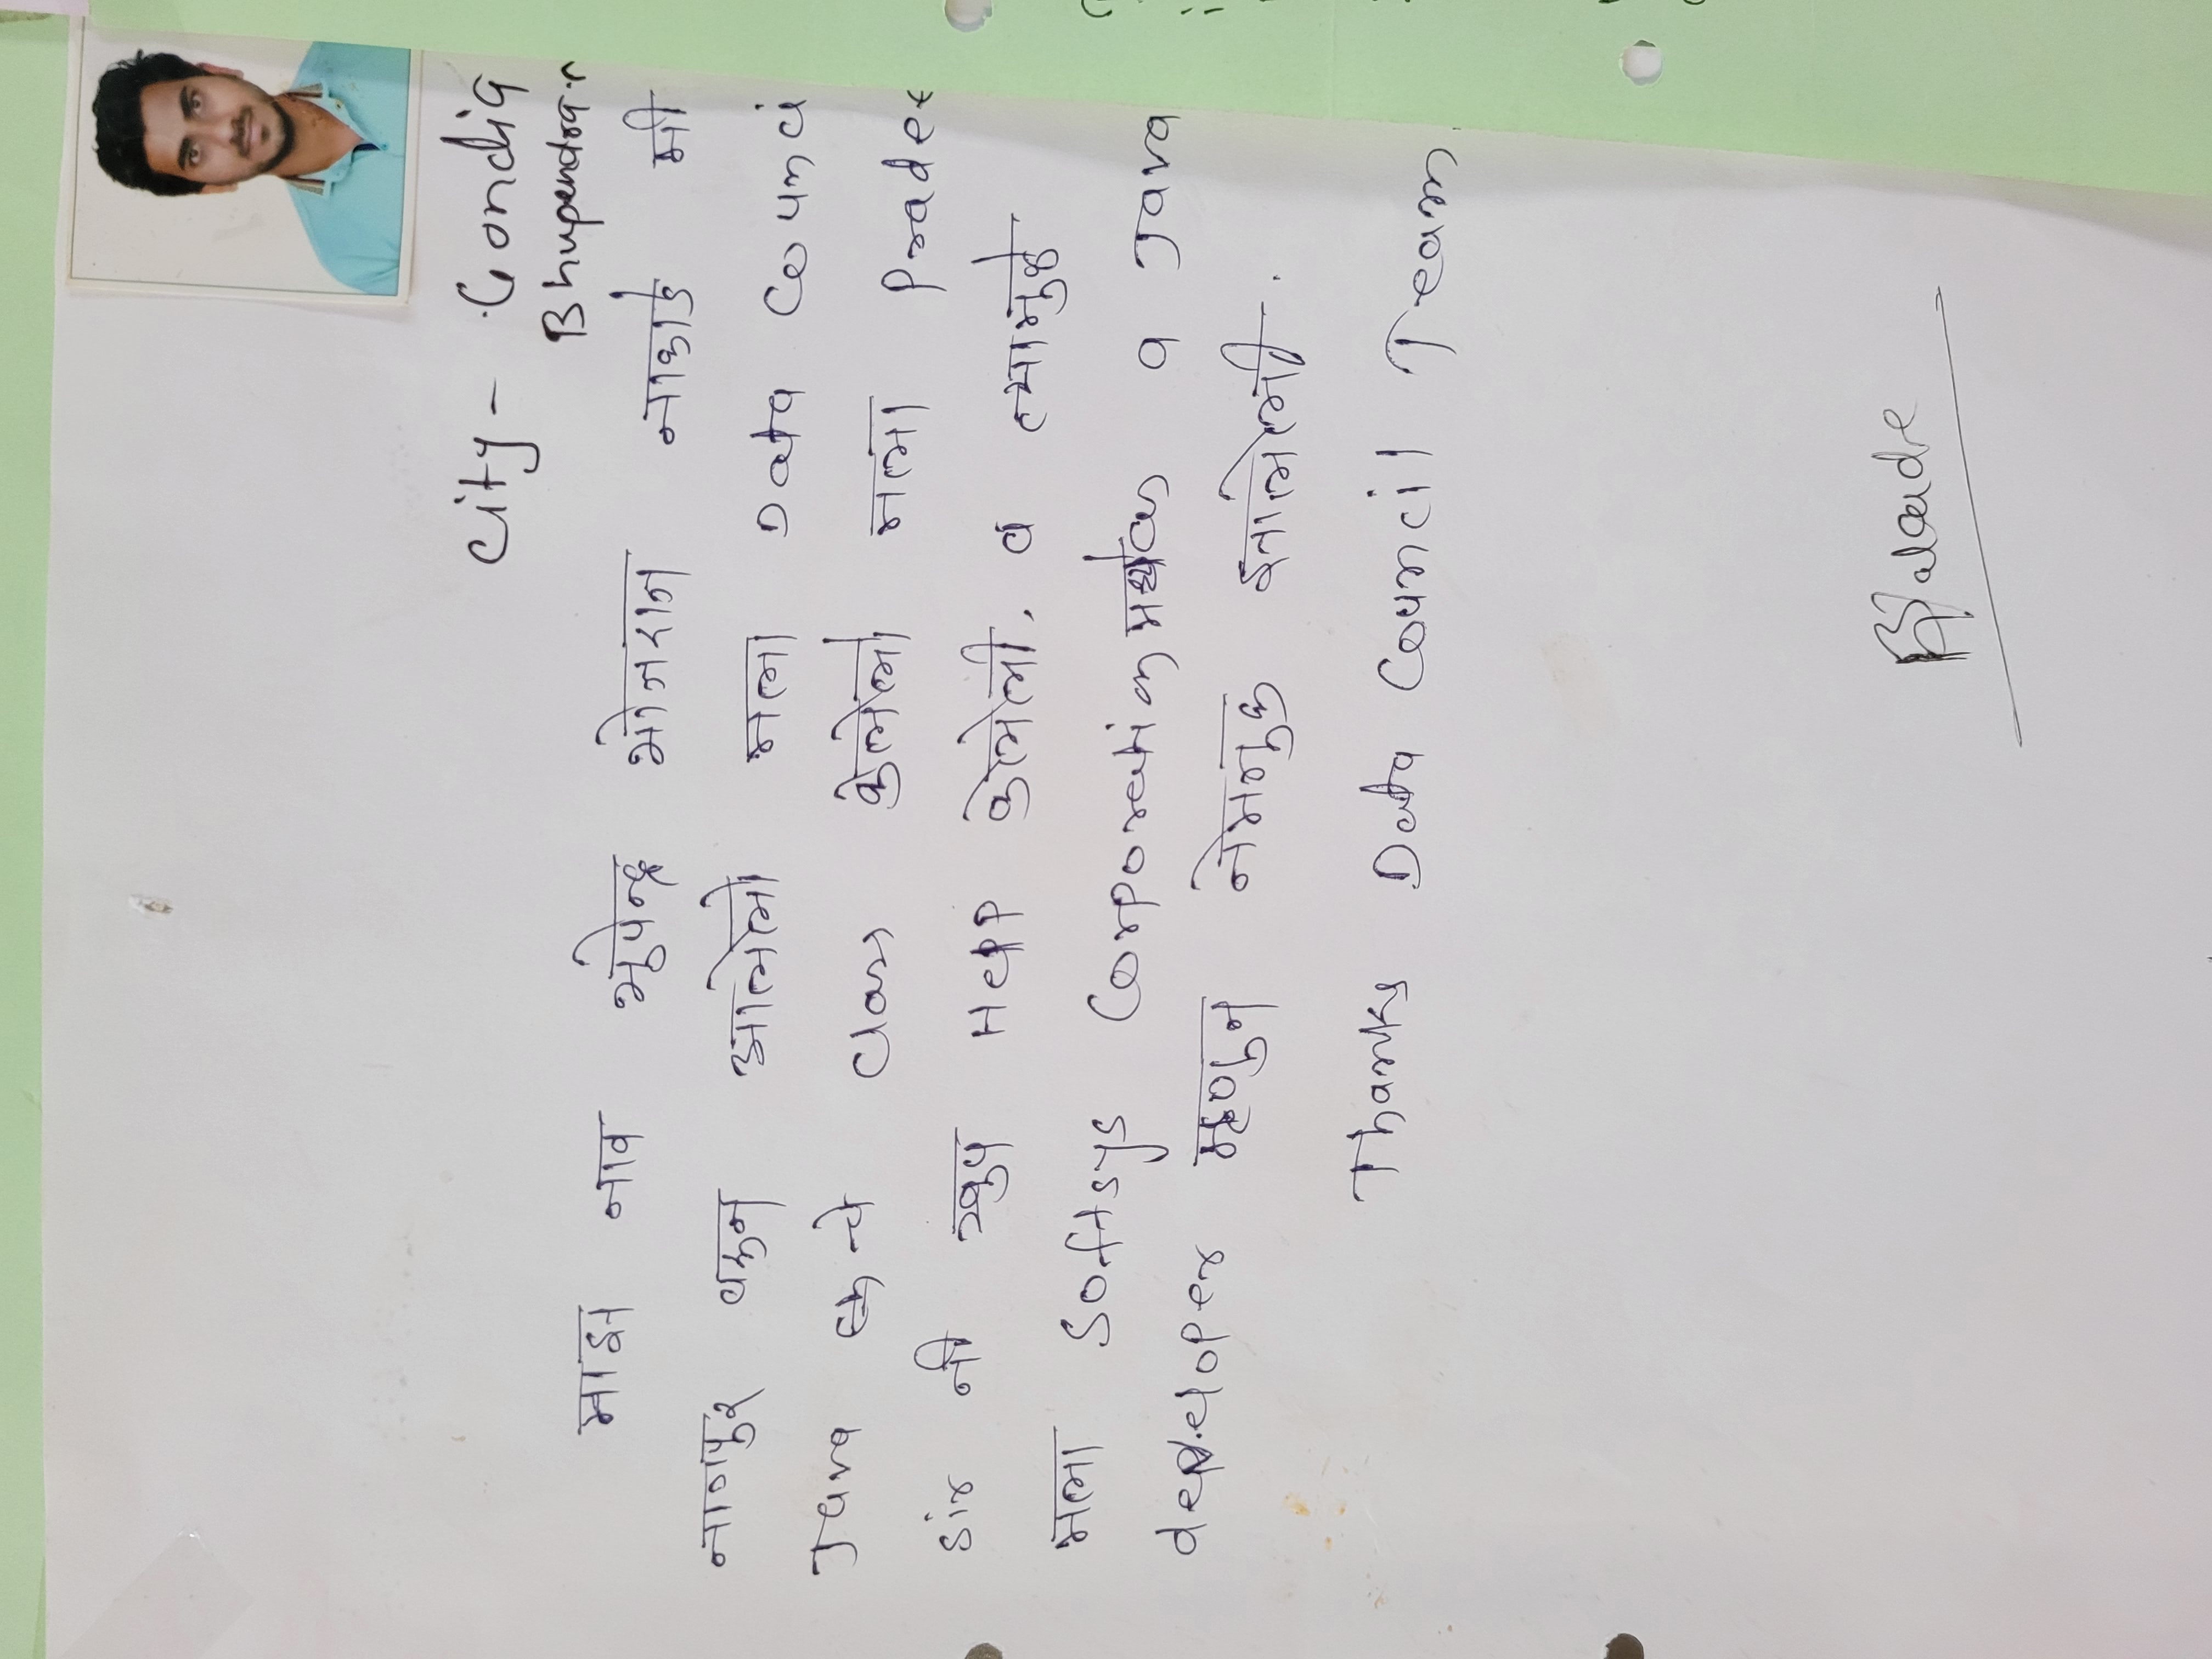 City - Gondia
Bhupendra
माझ नाव भुपेन्द्र भोजराज नाकाडे मी
नागपुर वरून आलेलो मला Data Counci
Java क् चे Class केलेलो मला Pradee
sir नी खुप Help केलेली. व त्यामुळे
मला Softsys Corporetion मध्ये as a Java
developer म्हणुन नेमनुक झालेली.
Thanks Data Council Team.